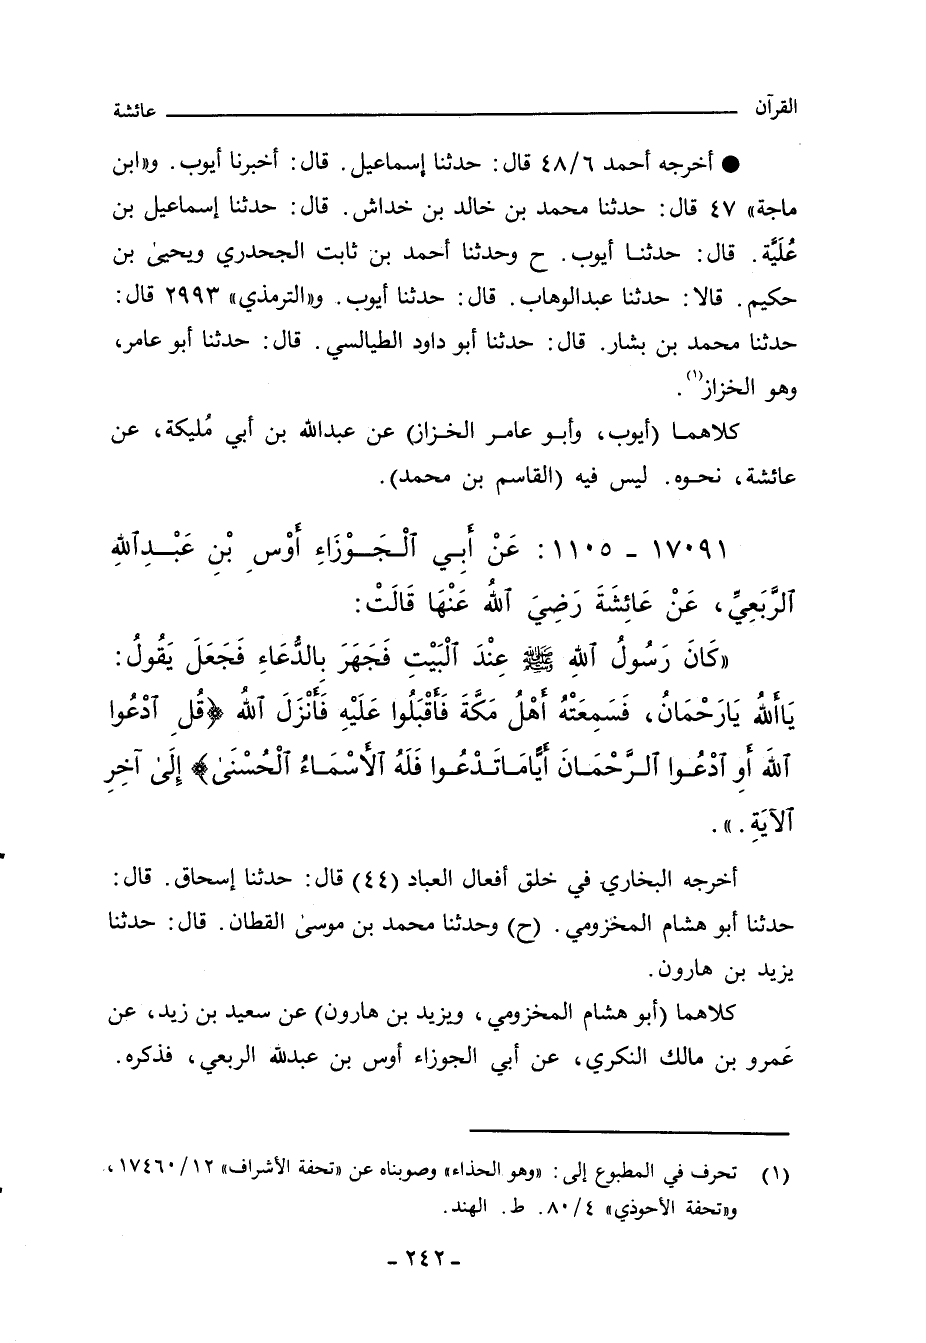 القرآن ــــــــــــــــــــ عائشة
● أخرجه أحمد ٤٨/٦ قال: حدثنا إسماعيل. قال: أخبرنا أيوب. و«ابن
ماجة» ٤٧ قال: حدثنا محمد بن خالد بن خداش. قال: حدثنا إسماعيل بن
عُلَيَّة. قال: حدثنا أيوب. ح وحدثنا أحمد بن ثابت الجحدري ويحيىٰ بن
حكيم. قالا: حدثنا عبدالوهاب. قال: حدثنا أيوب. و«الترمذي» ٢٩٩٣ قال:
حدثنا محمد بن بشار. قال: حدثنا أبو داود الطيالسي. قال: حدثنا أبو عامر،
وهو الخزاز(١).
كلاهما (أيوب، وأبو عامر الخزاز) عن عبدالله بن أبي مُليكة، عن
عائشة، نحوه. ليس فيه (القاسم بن محمد).
١٧٠٩١ - ١١٠٥: عَنْ أَبِي ٱلْجَوْزَاءِ أَوْسِ بْنِ عَبْدِٱللهِ
ٱلرَّبَعِيِّ، عَنْ عَائِشَةَ رَضِيَ ٱللهُ عَنْهَا قَالَتْ:
«كَانَ رَسُولُ ٱللهِ ﷺ عِنْدَ ٱلْبَيْتِ فَجَهَرَ بِالدُّعَاءِ فَجَعَلَ يَقُولُ:
يَاأَللهُ يَارَحْمَانُ، فَسَمِعَتْهُ أَهْلُ مَكَّةَ فَأَقْبَلُوا عَلَيْهِ فَأَنْزَلَ ٱللهُ ﴿قُلِ ٱدْعُوا
ٱللهَ أَوِ ٱدْعُوا ٱلرَّحْمَانَ أَيًّامَاتَدْعُوا فَلَهُ ٱلْأَسْمَاءُ ٱلْحُسْنَىٰ﴾ إِلَىٰ آخِرِ
ٱلآيَةِ.».
أخرجه البخاري في خلق أفعال العباد (٤٤) قال: حدثنا إسحاق. قال:
حدثنا أبو هشام المخزومي. (ح) وحدثنا محمد بن موسىٰ القطان. قال: حدثنا
يزيد بن هارون.
كلاهما (أبو هشام المخزومي، ويزيد بن هارون) عن سعيد بن زيد، عن
عَمرو بن مالك النكري، عن أبي الجوزاء أوس بن عبدالله الربعي، فذكره.
(١) تحرف في المطبوع إلى: «وهو الحذاء» وصوبناه عن «تحفة الأشراف» ١٧٤٦٠/١٢،
و«تحفة الأحوذي» ٨٠/٤. ط. الهند.
- ٢٤٢ -